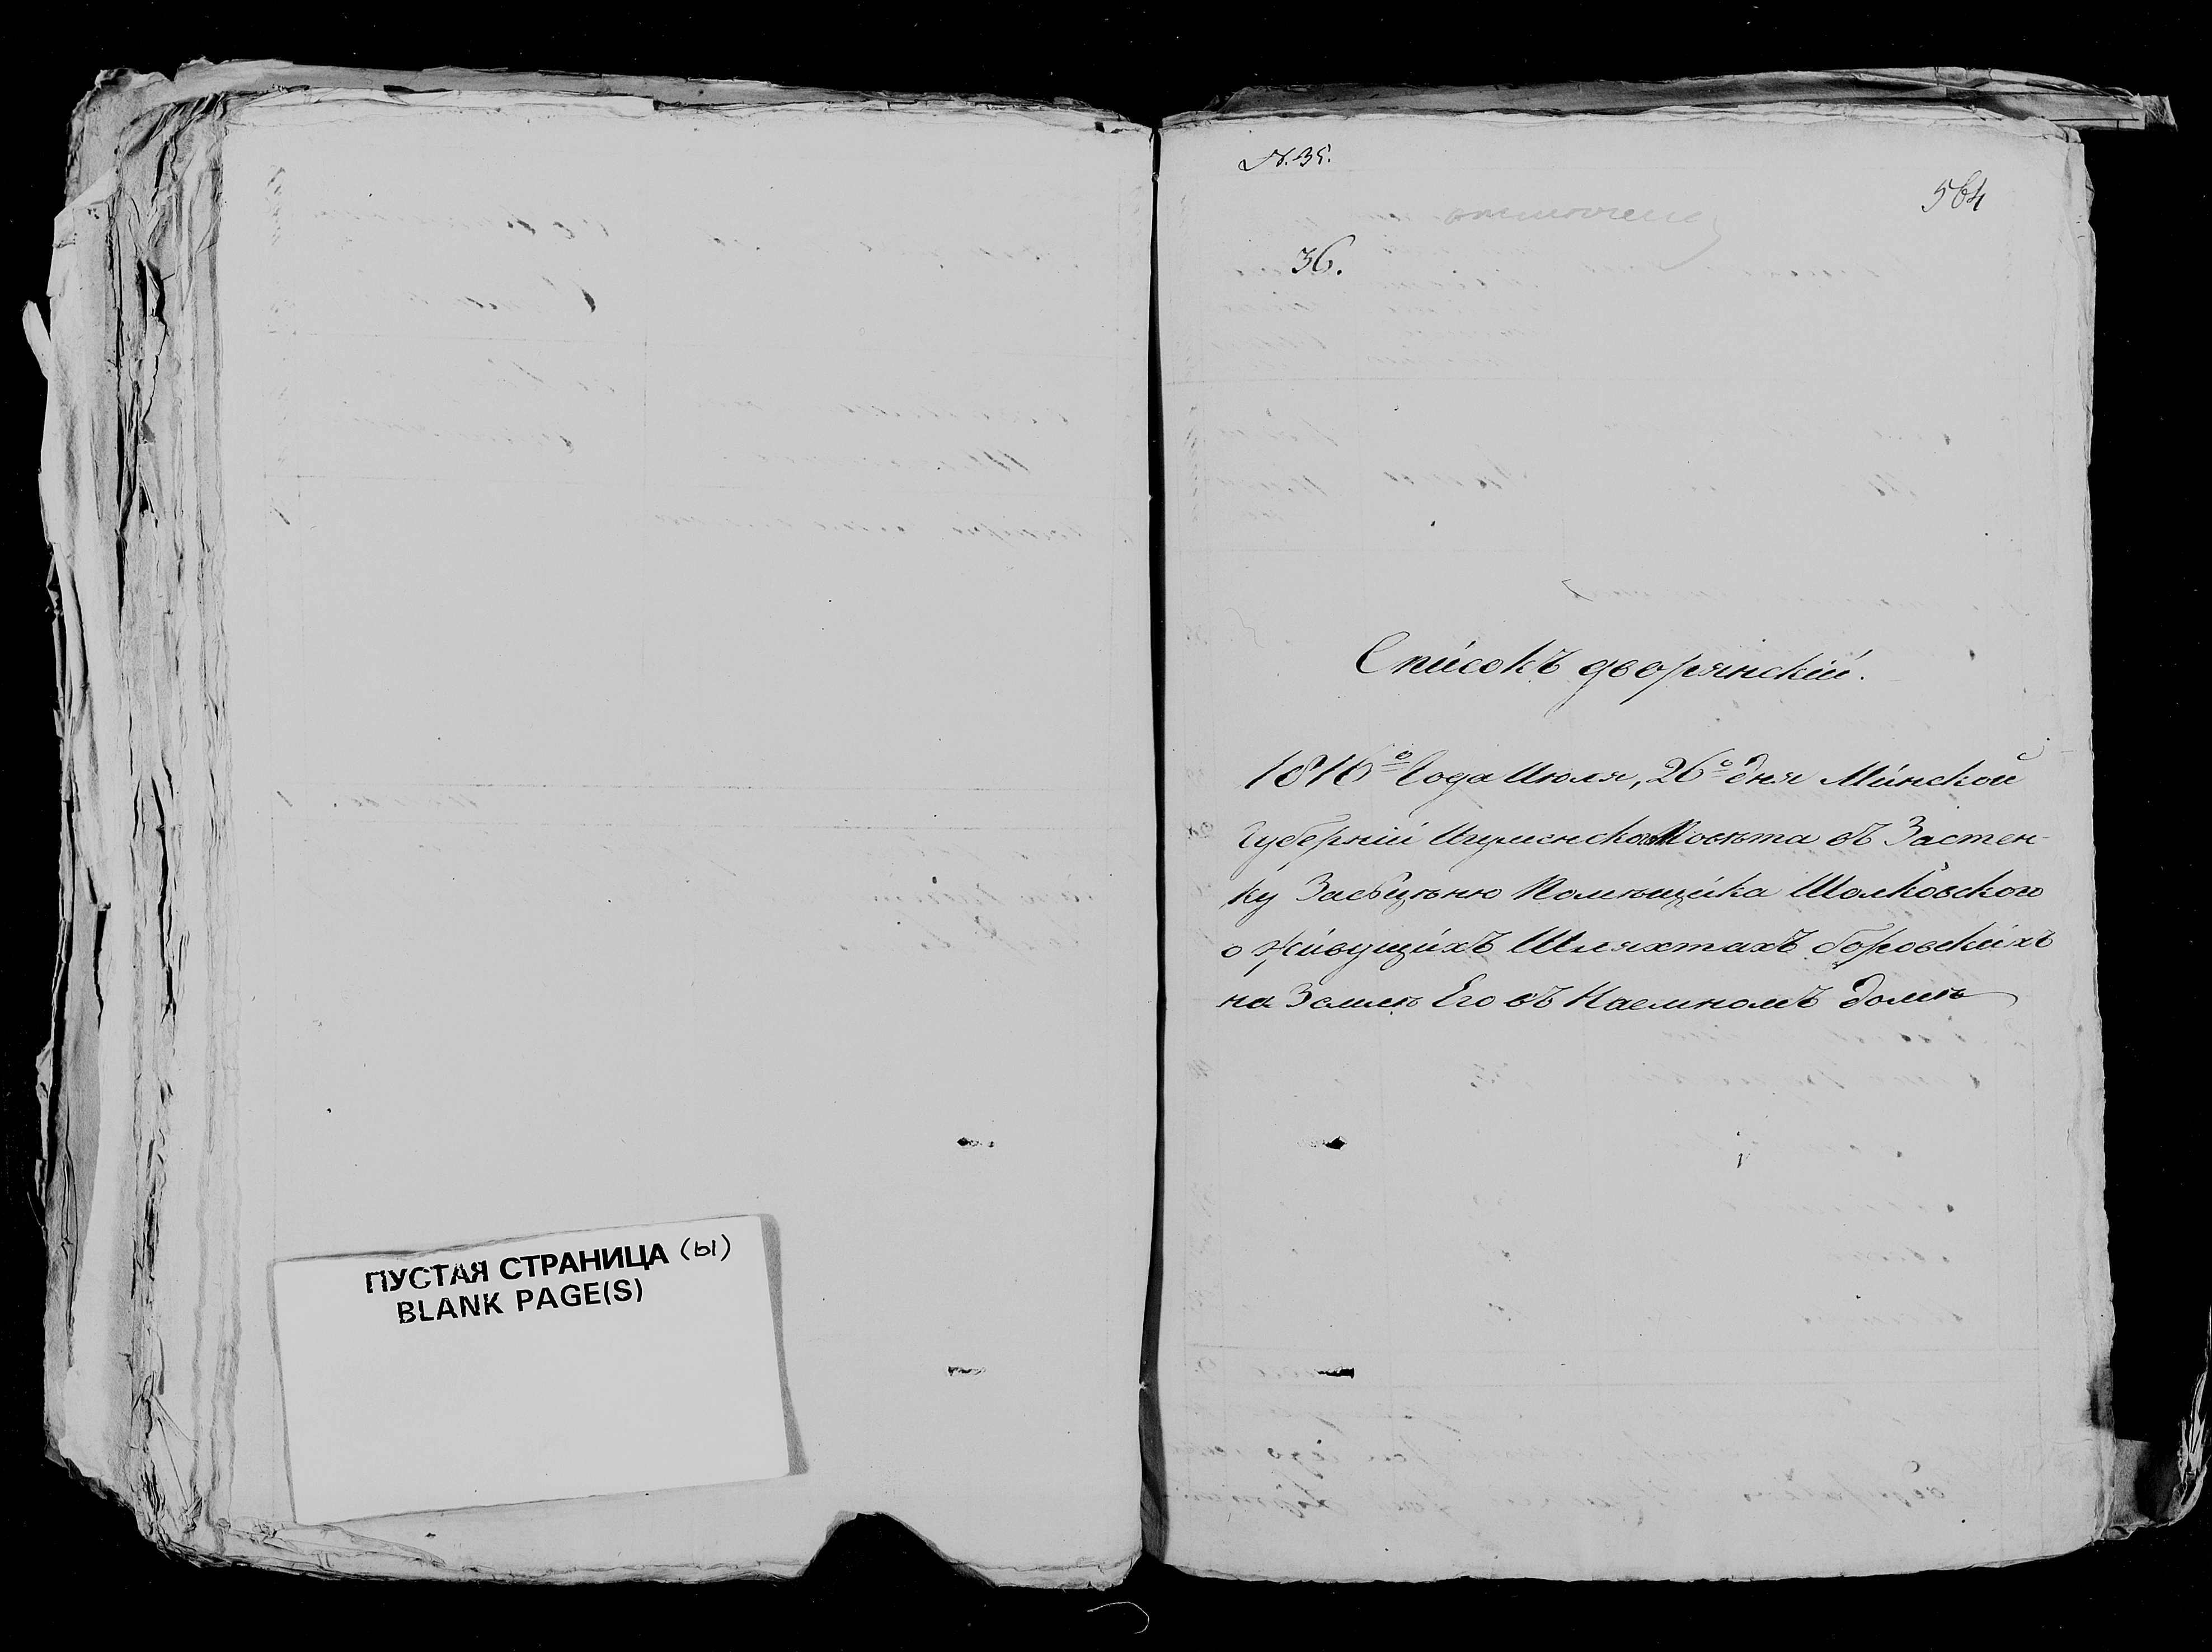 ПУСТАЯ СТРАНИЦА (ы)
BLANK PAGE(S)
№. 35.
564
36.
Списокъ дворянскій.
1816º Года Июля, 26º дня Минской
Губерніи Игуменского Повѣта въ Застен-
ку Помѣщика Шолковского
о живущихъ Шляхтахъ Боровскихъ
на Землѣ Его въ Наемномъ домѣ